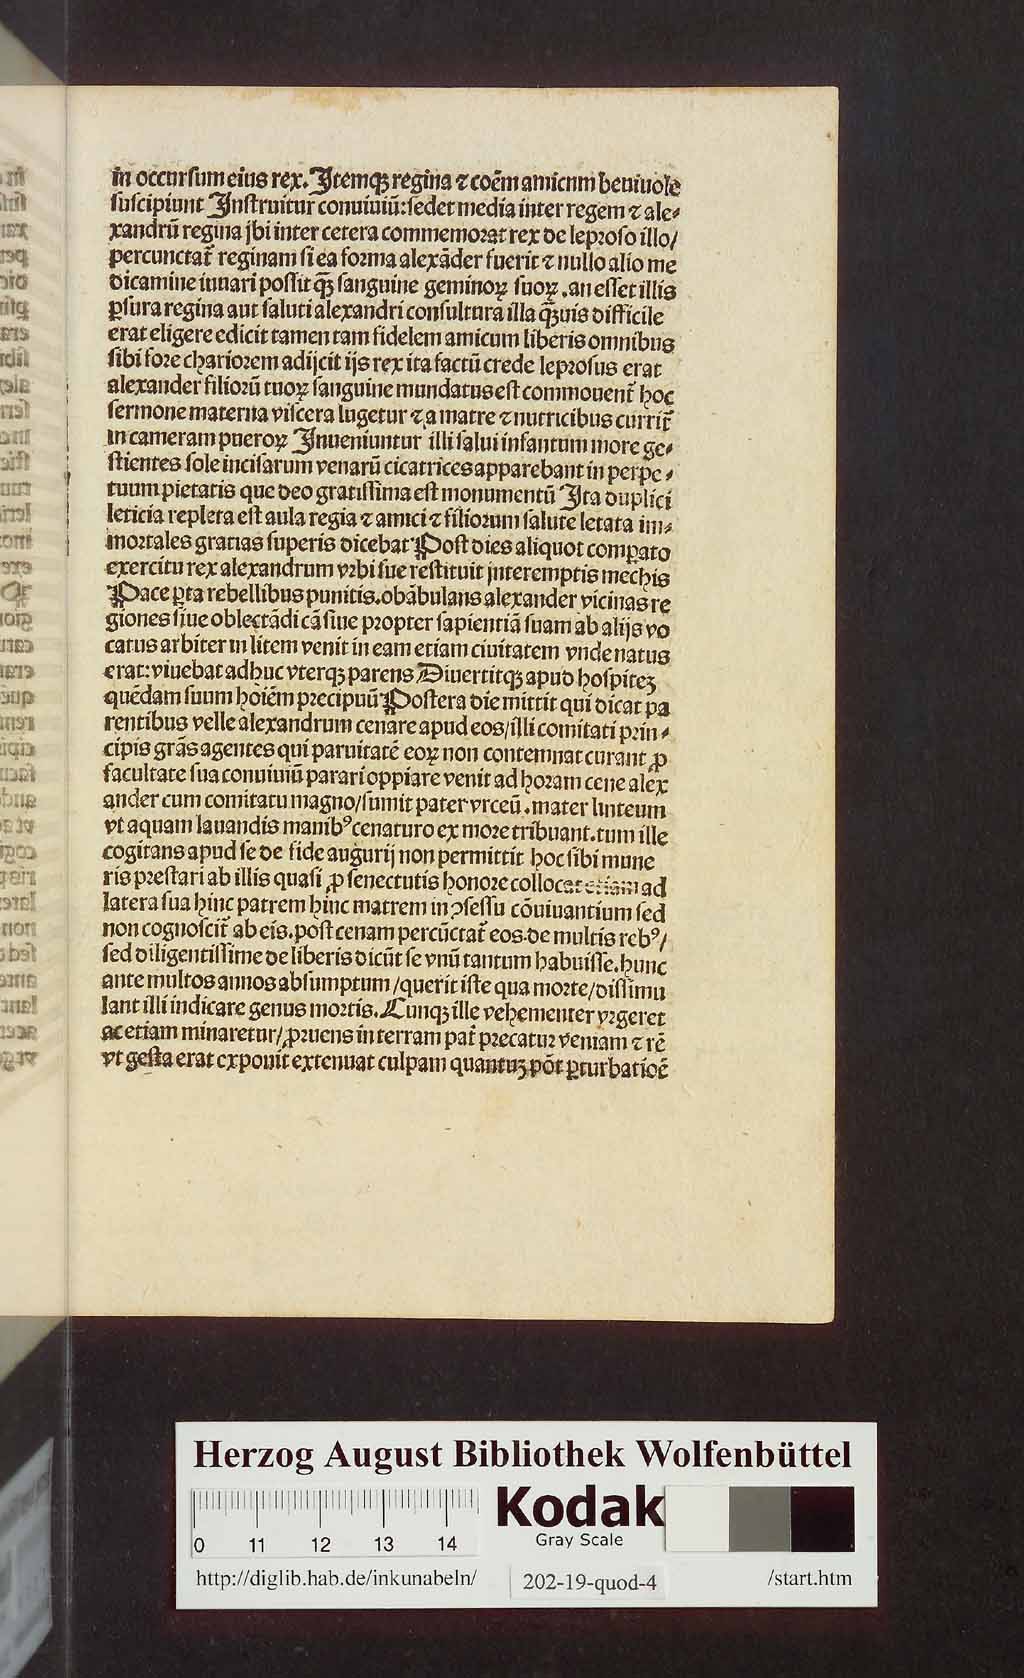 in occursum eius rex. Itemqꝫ regina ⁊ coēm amicum beniuole
suscipiunt Instruitur conuiuiū: sedet media inter regem ⁊ ale⸗
xandrū regina jbi inter cetera commemorat rex de leproso illo/
percunctat̄ reginam si ea forma alexāder fuerit ⁊ nullo alio me
dicamine iuuari possit qꝫ̄ sanguine geminoꝝ suoꝝ .an esset illis
ꝑsura regina aut saluti alexandri consultura illa qꝫ̄uis difficile
erat eligere edicit tamen tam fidelem amicum liberis omnibus
sibi fore chariorem adijcit ijs rex ita factū crede leprosus erat
alexander filiorū tuoꝝ sanguine mundatus est commouent̄ hoc
sermone materna viscera lugetur ⁊ a matre ⁊ nutricibus currit̄
in cameram pueroꝝ Inueniuntur illi salui infantum more ge⸗
stientes sole incisarum venarū cicatrices apparebant in perpe⸗
tuum pietatis que deo gratissima est monumentū Ita duplici
leticia repleta est aula regia ⁊ amici ⁊ filiorum salute letata im⸗
mortales gratias superis dicebat Post dies aliquot comꝑato
exercitu rex alexandrum vrbi sue restituit jnteremptis mechis
Pace ꝑta rebellibus punitis.obābulans alexander vicinas re
giones siue oblectādi cā siue propter sapientiā suam ab alijs vo
catus arbiter in litem venit in eam etiam ciuitatem vnde natus
erat: viuebat adhuc vterqꝫ parens Diuertitqꝫ apud hospiteꝫ
quēdam suum hoiēm precipuū Postera die mittit qui dicat pa
rentibus velle alexandrum cenare apud eos/illi comitati prin⸗
cipis grās agentes qui paruitatē eoꝝ non contemnat curant ꝓ
facultate sua conuiuiū parari oppiare venit ad horam cene alex
ander cum comitatu magno/sumit pater vrceū .mater linteum
vt aquam lauandis manibꝰ cenaturo ex more tribuant.tum ille
cogitans apud se de fide augurij non permittit hoc sibi mune
ris prestari ab illis quasi ꝓ senectutis honore collocat etiam ad
latera sua hinc patrem hinc matrem in ꝯsessu cōuiuantium sed
non cognoscit̄ ab eis.post cenam percūctat̄ eos.de multis rebꝰ/
sed diligentissime de liberis dicūt se vnū tantum habuisse.hunc
ante multos annos absumptum/querit iste qua morte/dissimu
lant illi indicare genus mortis. Cunqꝫ ille vehementer vrgeret
ac etiam minaretur/ꝓruens in terram pat̄ precatur veniam ⁊ rē
vt gesta erat exponit extenuat culpam quantuꝫ pōt ꝑturbatioē
Herzog August Bibliothek Wolfenbüttel
Kodak
Gray Scale
0 11 12 13 14
http://diglib.hab.de/inkunabeln/
202-19-quod-4
/start.htm